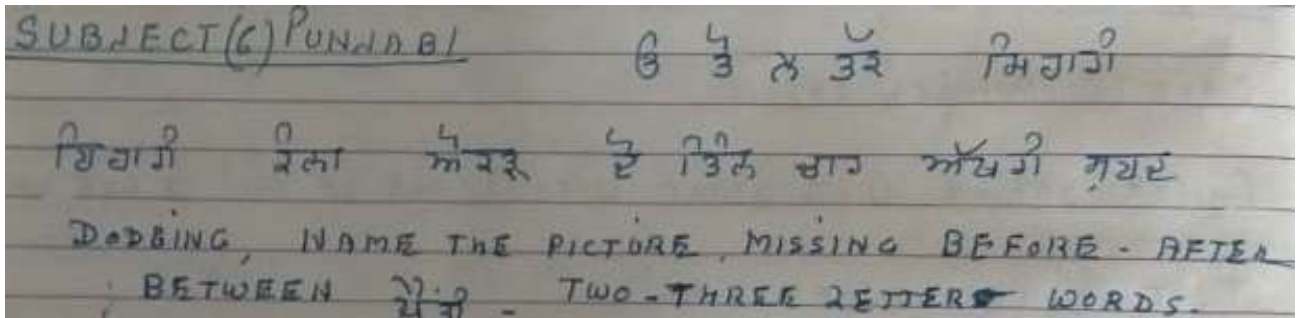 SUBJECT(6) PUNJABI ੳ ਤੋਂ ਲ ਤੱਕ ਸਿਹਾਰੀ
ਬਿਹਾਰੀ ਦੋ ਤਿੰਨ ਚਾਰ ਅੱਖਰੀ ਸ਼ਬਦ
DODGING, NAME THE PICTURE, MISSING BEFORE - AFTER
BETWEEN - TWO-THREE LETTER WORDS.